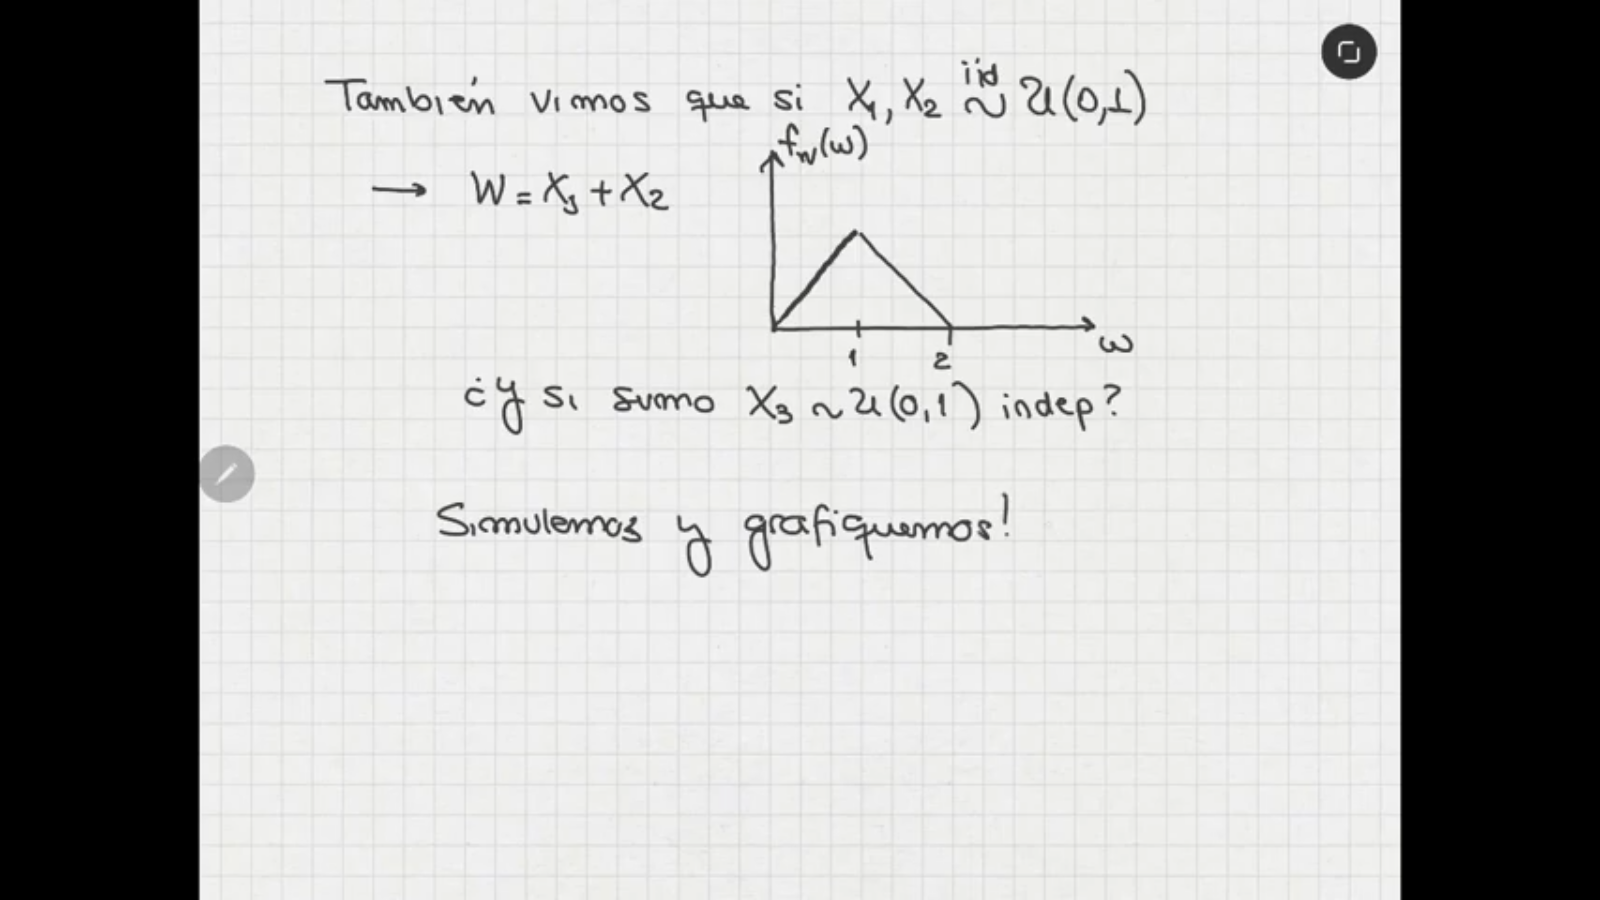 También vimos que si X₁, X₂ iid ~ U(0,1)
→ W = X₁ + X₂
f_W(ω)
1 2 ω
¿Y si sumo X₃ ~ U(0,1) indep?
Simulemos y grafiquemos!